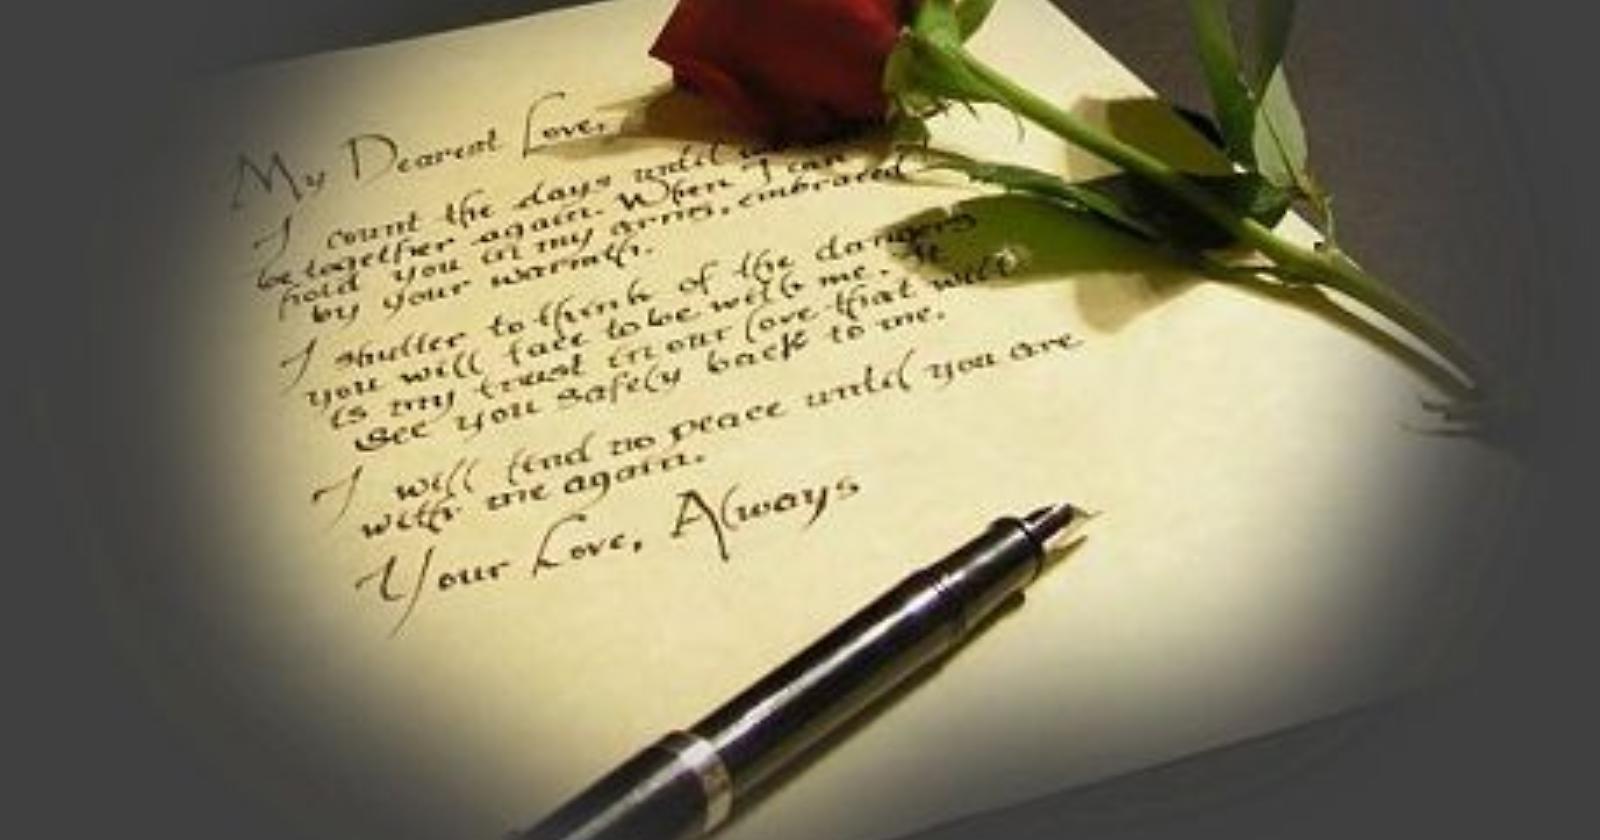 My Dearest Love,
I count the days until we can
be together again. When I can
hold you in my arms, embraced
by your warmth.
I shutter to think of the dangers
you will face to be with me. It
is my trust in our love that will
see you safely back to me.
I will find no peace until you are
with me again.
Your Love, Always